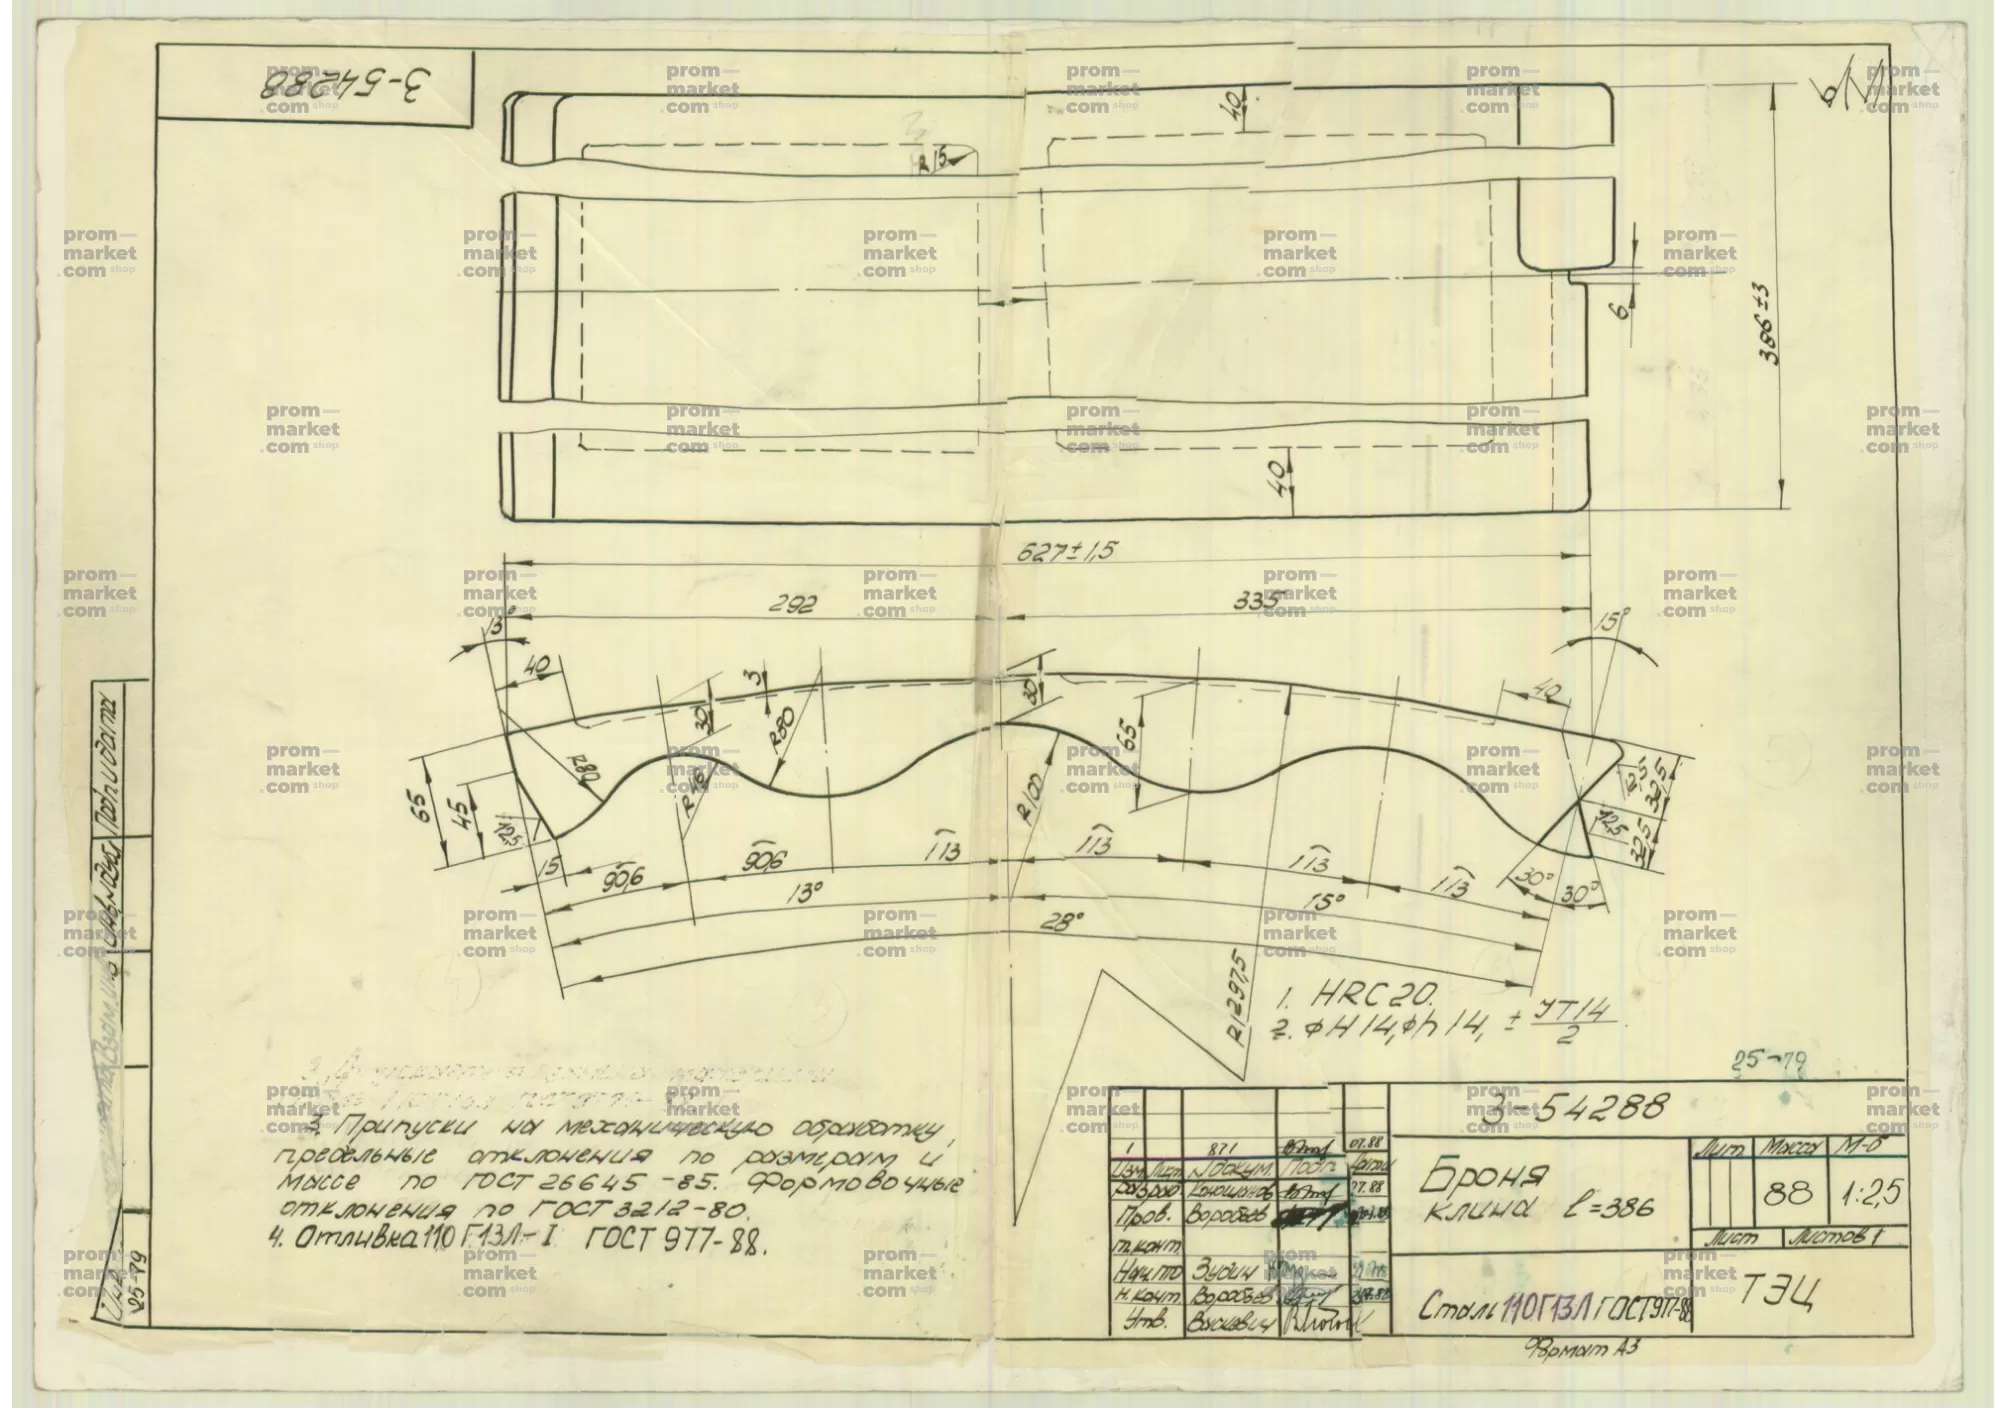 3-54288
40
R15
6
386±3
40
627±1,5
292
335
13°
15°
40
3
30
30
40
R80
R80
65
R100
65
45
12,5
12,5
32,5
12,5
32,5
15
90,6
90,6
113
113
113
113
30°
30°
13°
15°
28°
R1297,5
1. HRC 20.
2. ФН14, фh14, ± УТ14
2
3. Припуски на механическую обработку,
предельные отклонения по размерам и
массе по ГОСТ 26645-85. Формовочные
отклонения по ГОСТ 3212-80.
4. Отливка 110Г13Л-I ГОСТ 977-88.
25-79
3-54288
1 871 07.88
Изм Лист № докум. Подп. Дата
Разраб
Пров. Воробьев
Т.конт
Нач.ПТО Зубин
Н. конт Воробьев
Утв. Васкевич
Броня
клина l=386
Лит Масса М-б
88 1:2,5
Лист Листов 1
Сталь 110Г13Л ГОСТ 977-88
ТЭЦ
Формат А3
Подп. и дата
25-79
prom—
market
.com shop